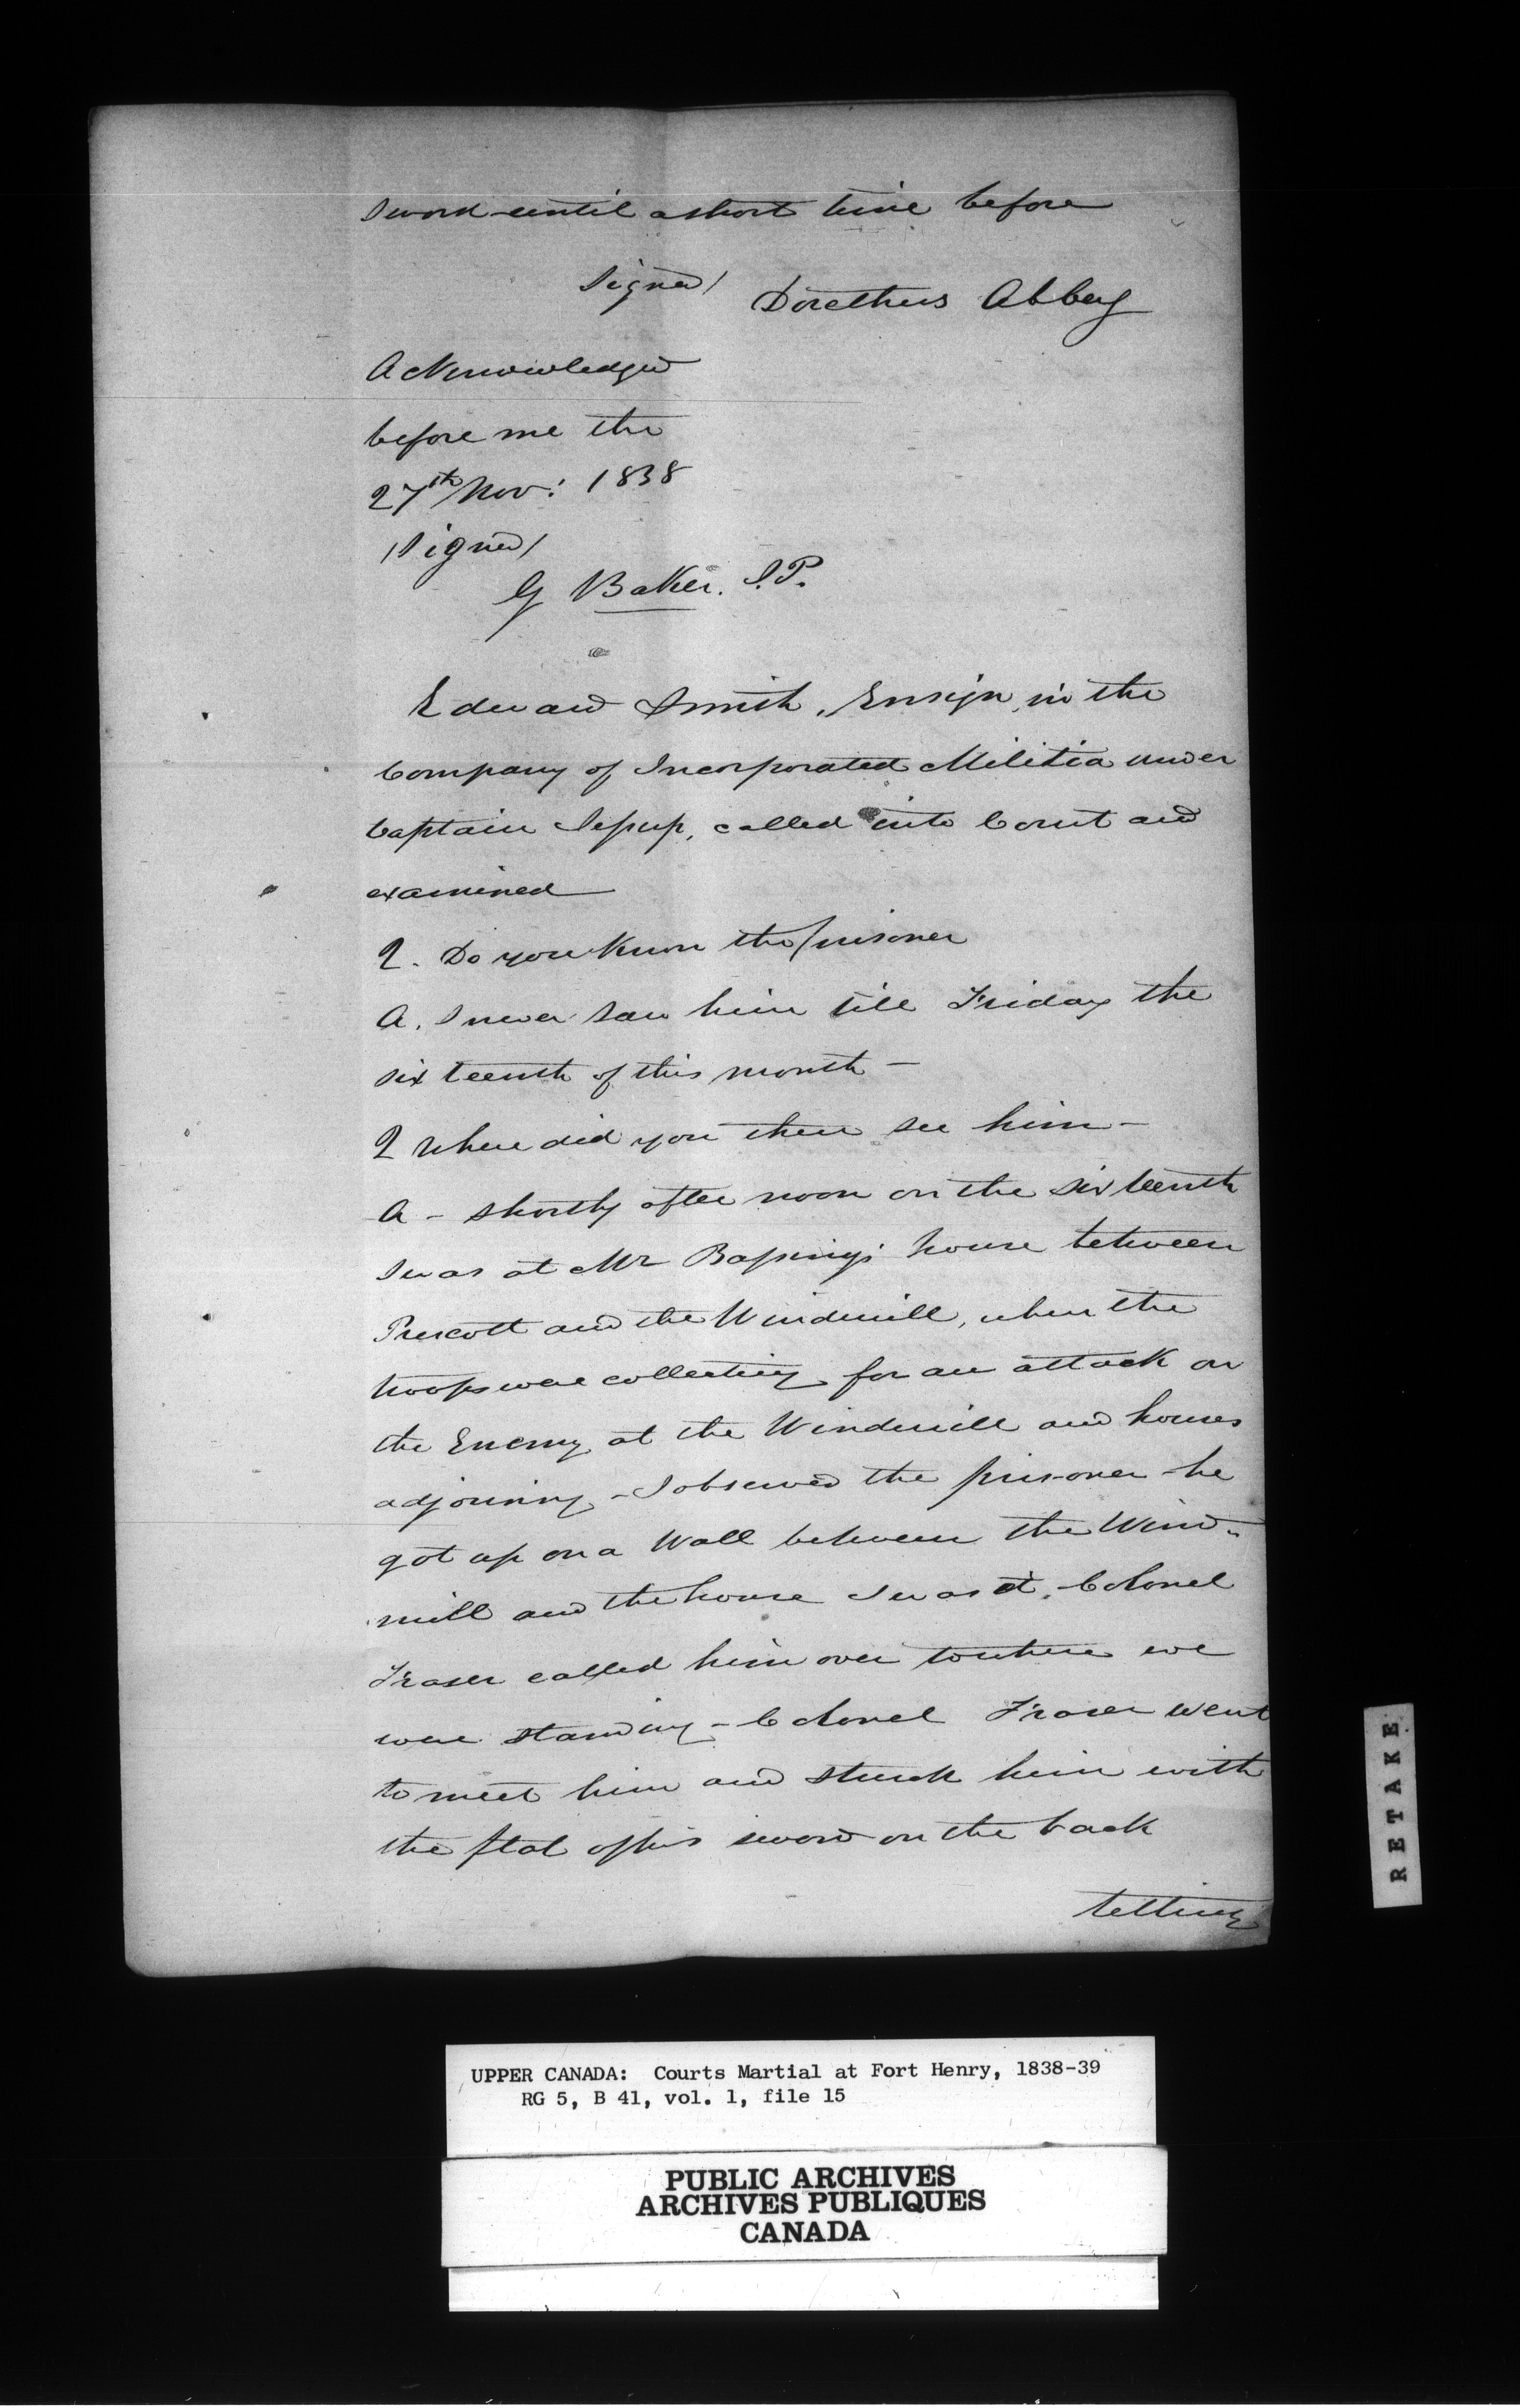 sword until a short time before
signed/ Dorethus Abbey
Acknowledged
before me the
27th Nov: 1838
/signed/
G Baker. J.P.
Edward Smith, Ensign, in the
Company of Incorporated Militia under
Captain Jessup, called into Court and
examined
Q. Do you Know the prisoner
A. I never saw him till Friday the
sixteenth of this month –
Q Where did you then see him –
A – shortly after noon on the sixteenth
I was at Mr house between
Prescott and the Windmill, when the
troops were collecting for an attack on
the Enemy at the Windmill and houses
adjoining – I observed the prisoner – he
got up on a Wall between the Wind-
mill and the house I was at. Colonel
Fraser called him over to where we
were standing – Colonel Fraser went
to meet him and struck him with
the flat of his sword on the back
telling
RETAKE
UPPER CANADA: Courts Martial at Fort Henry, 1838-39
RG 5, B 41, vol. 1, file 15
PUBLIC ARCHIVES
ARCHIVES PUBLIQUES
CANADA